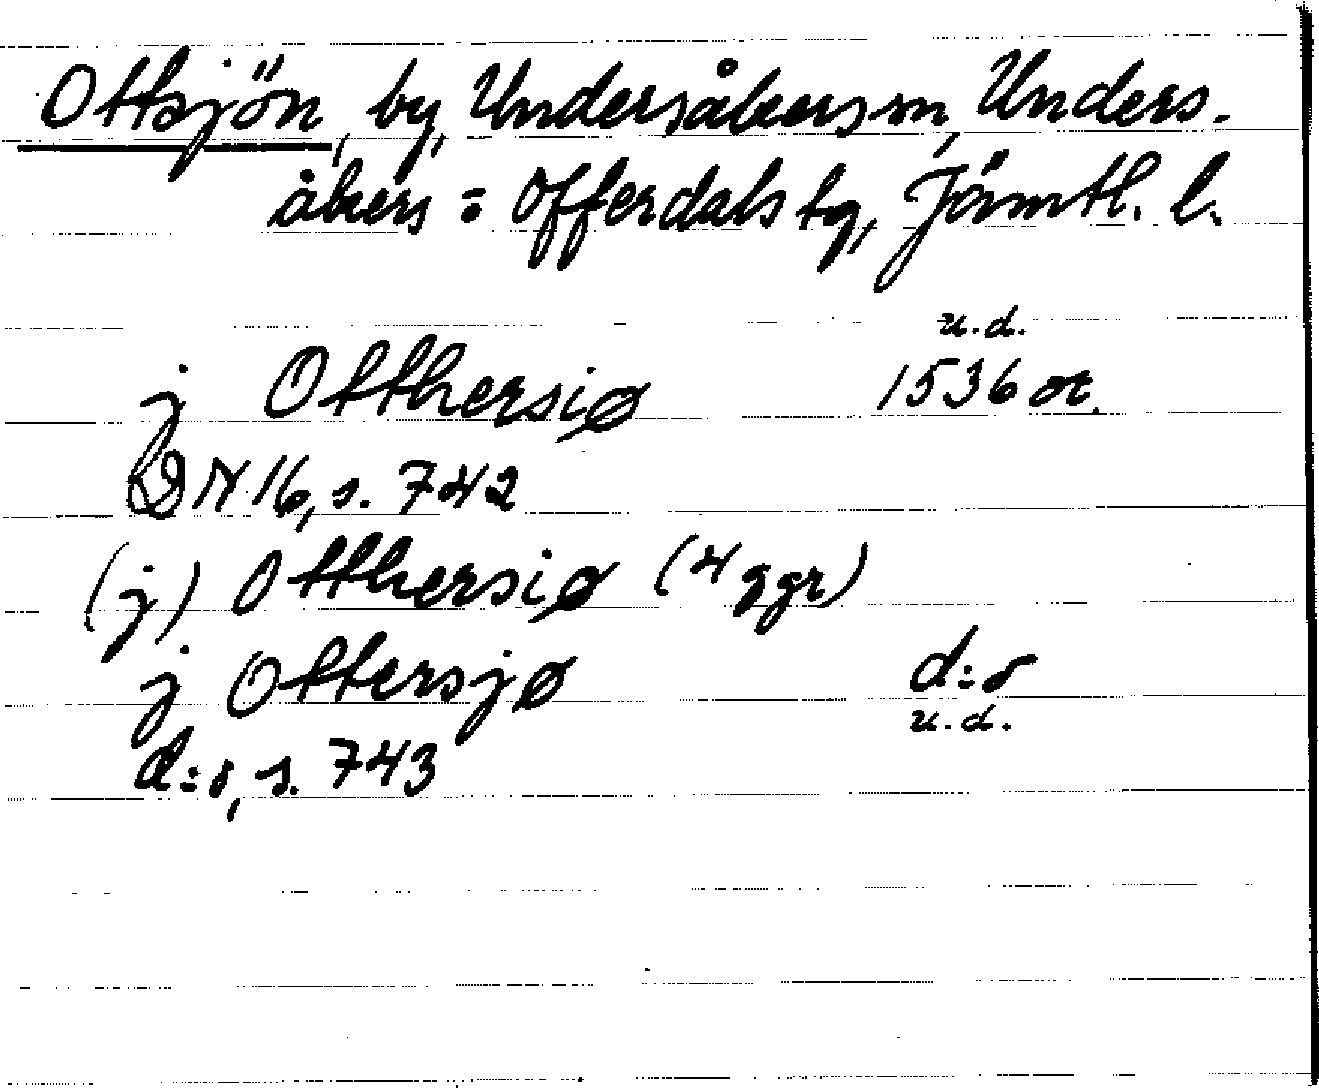 Ottsjön, by, Undersåkers sn, Unders-
åkers = Offerdals tg, Jämtl. l.
u.d.
j Otthersiø 1536 or.
DN 16, s. 742
(j) Otthersiø (4 ggr)
j Ottersjø d:o
u.d.
d:o, s. 743